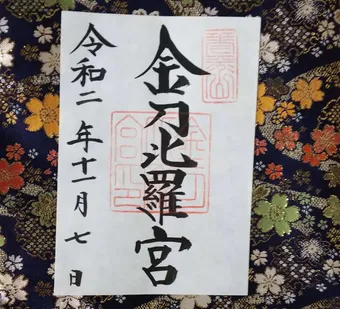 金刀比羅宮
令和二年十一月七日